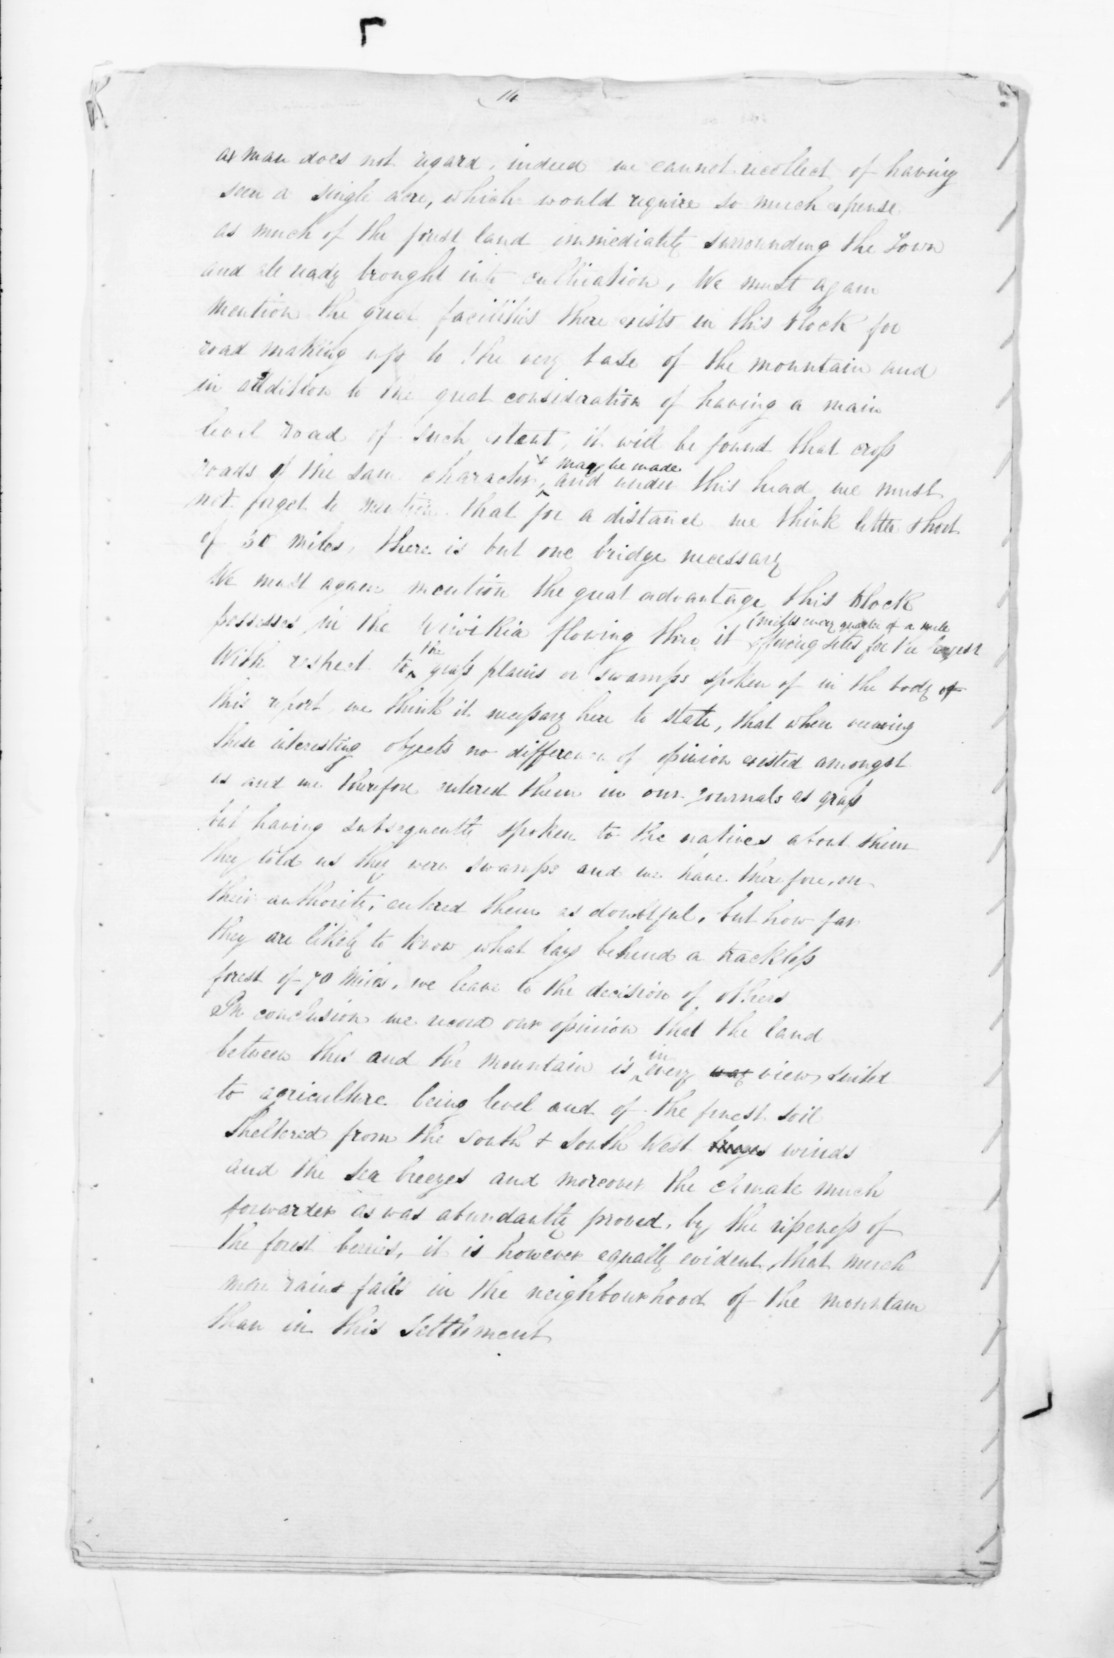 14
axman does not regard, indeed we cannot recollect of having
seen a single acre, which would require so much expense
as much of the forest land immediately surrounding the Town
and already brought into cultivation, We must again
mention the great facilities there exists in this block for
road making up to the very base of the mountain and
in addition to the great consideration of having a main
level road of such extent, it will be found that cross
roads of the same character may be made and under this head we must
not forget to mention that for a distance we think little short
of 30 miles, there is but one bridge necessary
We must again mention the great advantage this block
possesses in the flowing thro it offering sites for
every quarter of a mile
With respect to the grass plains or swamps spoken of in the body of
this report we think it necessary here to state, that when viewing
these interesting objects no difference of opinion existed amongst
us and we therefore entered them in our journals as grass
but having subsequently spoken to the natives about them
they told us they were swamps and we have therefore, on
their authority, entered them as doubtful, but how far
they are likely to know what lays behind a trackless
forest of 70 miles, we leave to the decision of others
In conclusion we record our opinion that the land
between this and the mountain is in every way view suited
to agriculture being level and of the finest soil
sheltered from the south & South West winds
and the sea breezes and moreover the climate much
forwarder as was abundantly proved, by the ripeness of
the forest berries, it is however equally evident, that much
more rain falls in the neighbourhood of the mountain
than in this Settlement